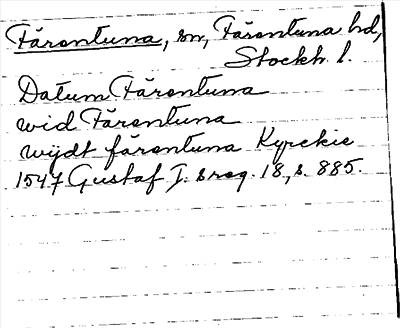 Färentuna, sn, Färentuna hd,
Stockh. l.
Datum Färentuna
wid Färentuna
wijdt färentuna Kyrckie
1547 Gustaf I. s reg. 18, s. 885.